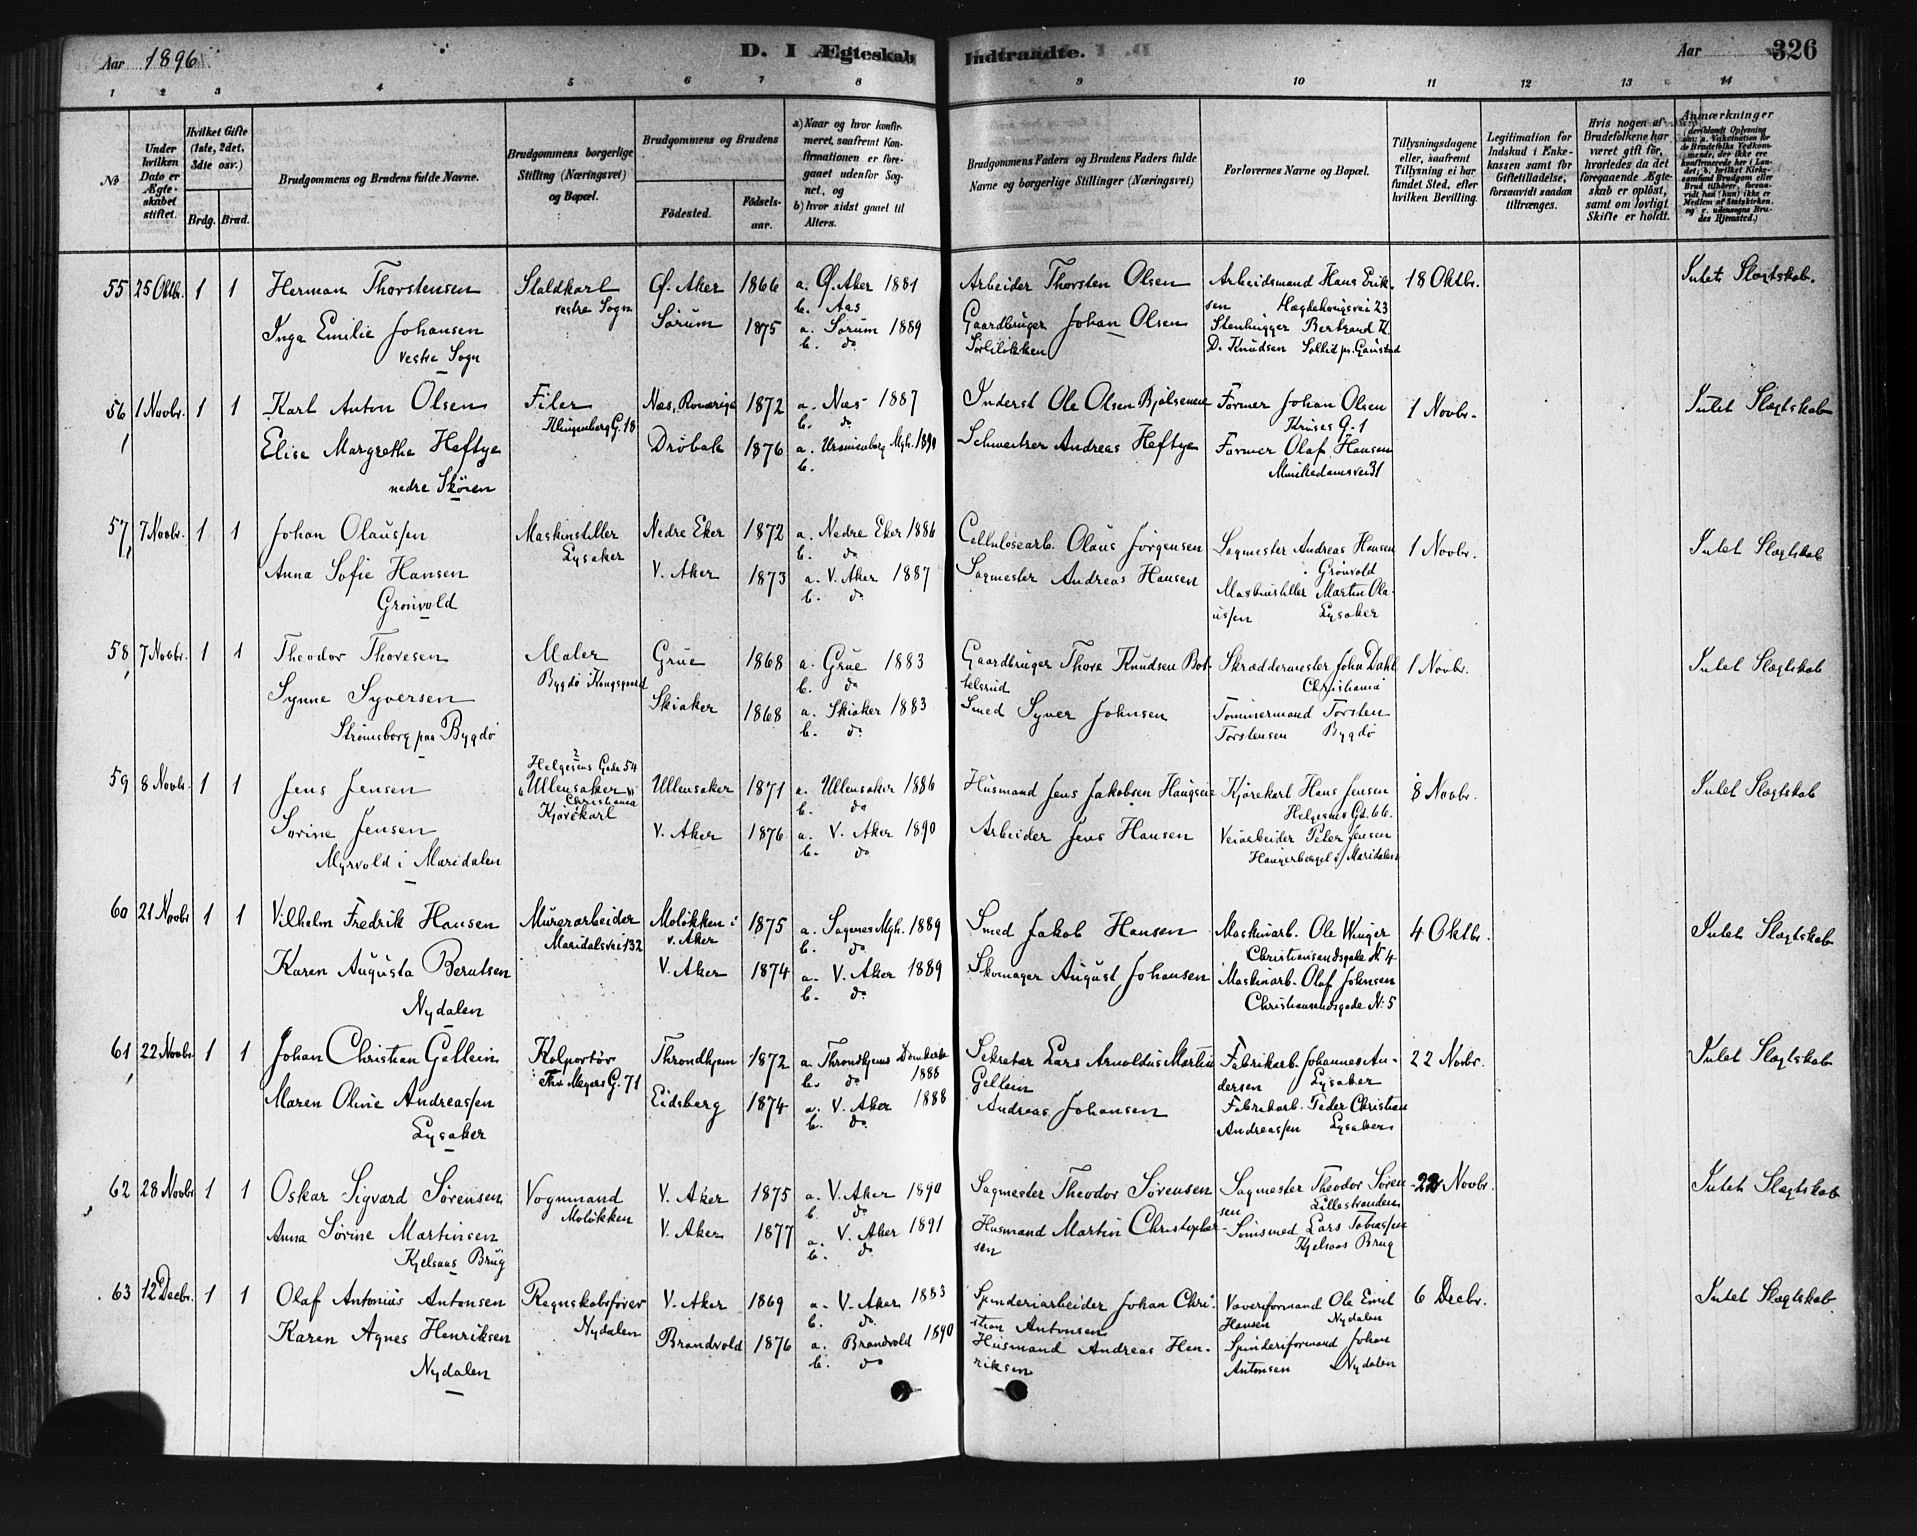 Aar 1896. D. I Ægteskab Indtraadte. Aar 326
1 2 3 4 5 6 7 8 9 10 11 12 13 14
No
Under hvilken Dato er Ægteskabet stiftet.
Hvilket Gifte (1ste, 2det, 3die osv.)
Brdg. Brud.
Brudgommens og Brudens fulde Navne.
Brudgommens borgerlige Stilling (Næringsvei) og Bopæl.
Brudgommens og Brudens
Fødested. Fødselsaar.
a) Naar og hvor konfirmeret, saafremt Konfirmationen er foregaaet udenfor Sognet, og
b) hvor sidst gaaet til Alters.
Brudgommens Faders og Brudens Faders fulde Navne og borgerlige Stillinger (Næringsvei)
Forlovernes Navne og Bopæl.
Tillysningsdagene eller, saafremt Tillysning ei har fundet Sted, efter hvilken Bevilling.
Legitimation for Indskud i Enkekassen samt for Giftetilladelse, forsaavidt saadan tiltrænges.
Hvis nogen af Brudefolkene har været gift før, hvorledes da det foregaaende Ægteskab er opløst, samt om lovligt Skifte er holdt.
Anmærkninger
55 25 Oktbr. 1 1 Herman Thorstensen Staldkarl Ø. Aker 1866 a. Ø. Aker 1881 Arbeider Thorsten Olsen Arbeidsmand Hans Erik- 18 Oktbr. Intet Slægtskab.
vestre Sogn b. Aas sen Hægdehougsvei 23
Inga Emilie Johansen Sørum 1875 a. Sørum 1889 Gaardbruger Johan Olsen Stenhugger Bertrand K.
vestre Sogn b. do Sørliløkken D. Knudsen Sollid pr. Gaustad
56 1 Novbr. 1 1 Karl Anton Olsen Filer Næs, Romerige 1872 a. Næs 1887 Inderst Ole Olsen Bjølseneie Former Johan Olsen 1 Novbr. Intet Slægtskab
Klingenberg G. 18 b. do Kruses G. 1
Elise Margrethe Heftye Drøbak 1876 a. Uranienborg Mgh. 1890 Schweitzer Andreas Heftye Former Olaf Hansen
nedre Skøien b. Munkedamsvei 31
57 7 Novbr. 1 1 Johan Olaussen Maskinstiller Nedre Eker 1872 a. Nedre Eker 1886 Cellulosearb. Olaus Jørgensen Sagmester Andreas Hansen 1 Novbr. Intet Slægtskab
Lysaker b. do Grønvold
Anna Sofie Hansen V. Aker 1873 a. V. Aker 1887 Sagmester Andreas Hansen Maskinstiller Martin Ola-
Grønvold b. do ussen Lysaker
58 7 Novbr. 1 1 Theodor Thoresen Maler Grue 1868 a. Grue 1883 Gaardbruger Thore Knudsen Bot- Skræddermester John Dahl 1 Novbr. Intet Slægtskab
Bygdø Kongsgaard b. do telsrud Christiania
Synne Syversen Skiaker 1868 a. Skiaker 1883 Smed Syver Johnsen Tømmermand Torsten
Strømsborg paa Bygdø b. do Torstensen Bygdø
59 8 Novbr. 1 1 Jens Jensen Helgesens Gade 54 Ullensaker Christiania Kjørekarl Ullensaker 1871 a. Ullensaker 1886 Husmand Jens Jakobsen Haugseie Kjørekarl Hans Jensen 8 Novbr. Intet Slægtskab
b. do Helgesens Gd. 66.
Sorine Jensen V. Aker 1876 a. V. Aker 1890 Arbeider Jens Hansen Veiarbeider Peter Jensen
Myrvold i Maridalen b. do Haugerberget i Maridalen
60 21 Novbr 1 1 Vilhelm Fredrik Hansen Murerarbeider Moløkken i 1875 a. Sagenes Mgh. 1889 Smed Jakob Hansen Maskinarb. Ole Winger 4 Oktbr. Intet Slægtskab
Maridalsvei 132 V. Aker b. do Christiansandsgade N 4
Karen Augusta Berntsen V. Aker 1874 a. V. Aker 1889 Skomager August Johansen Maskinarb. Olaf Johnsen
Nydalen b. do Christiansandsgade N. 5
61 22 Novbr 1 1 Johan Christian Gellein Kolportør Throndhjem 1872 a. Throndhjems Domkirke 1888 Sekretær Lars Arnoldus Martin Fabrikarb. Johannes An- 22 Novbr. Intet Slægtskab
Thv. Meyers G. 71 b. do Gellein dersen Lysaker
Maren Oline Andreassen Eidsberg 1874 a. V. Aker 1888 Andreas Johansen Fabrikarb. Peder Christian
Lysaker b. do Andreassen Lysaker
62 28 Novbr 1 1 Oskar Sigvard Sørensen Vognmand V. Aker 1875 a. V. Aker 1890 Sagmester Theodor Sørensen Sagmester Theodor Søren- 22 Novbr. Intet Slægtskab
Moløkken b. do sen Lillestranden
Anna Sørine Martinsen V. Aker 1877 a. V. Aker 1891 Husmand Martin Christopher- Sømsmed Lars Tobiassen
Kjelsaas Brug b. do sen Kjelsaas Brug
63 12 Decbr. 1 1 Olaf Antonius Antonsen Regnskabsfører V. Aker 1869 a. V. Aker 1883 Spinderiarbeider Johan Chri- Væveriformand Ole Emil 6 Decbr. Intet Slægtskab
Nydalen b. do stian Antonsen Hansen Nydalen
Karen Agnes Henriksen Brandvold 1876 a. Brandvold 1890 Husmand Andreas Hen- Spinderiformand Johan
Nydalen b. do riksen Antonsen Nydalen